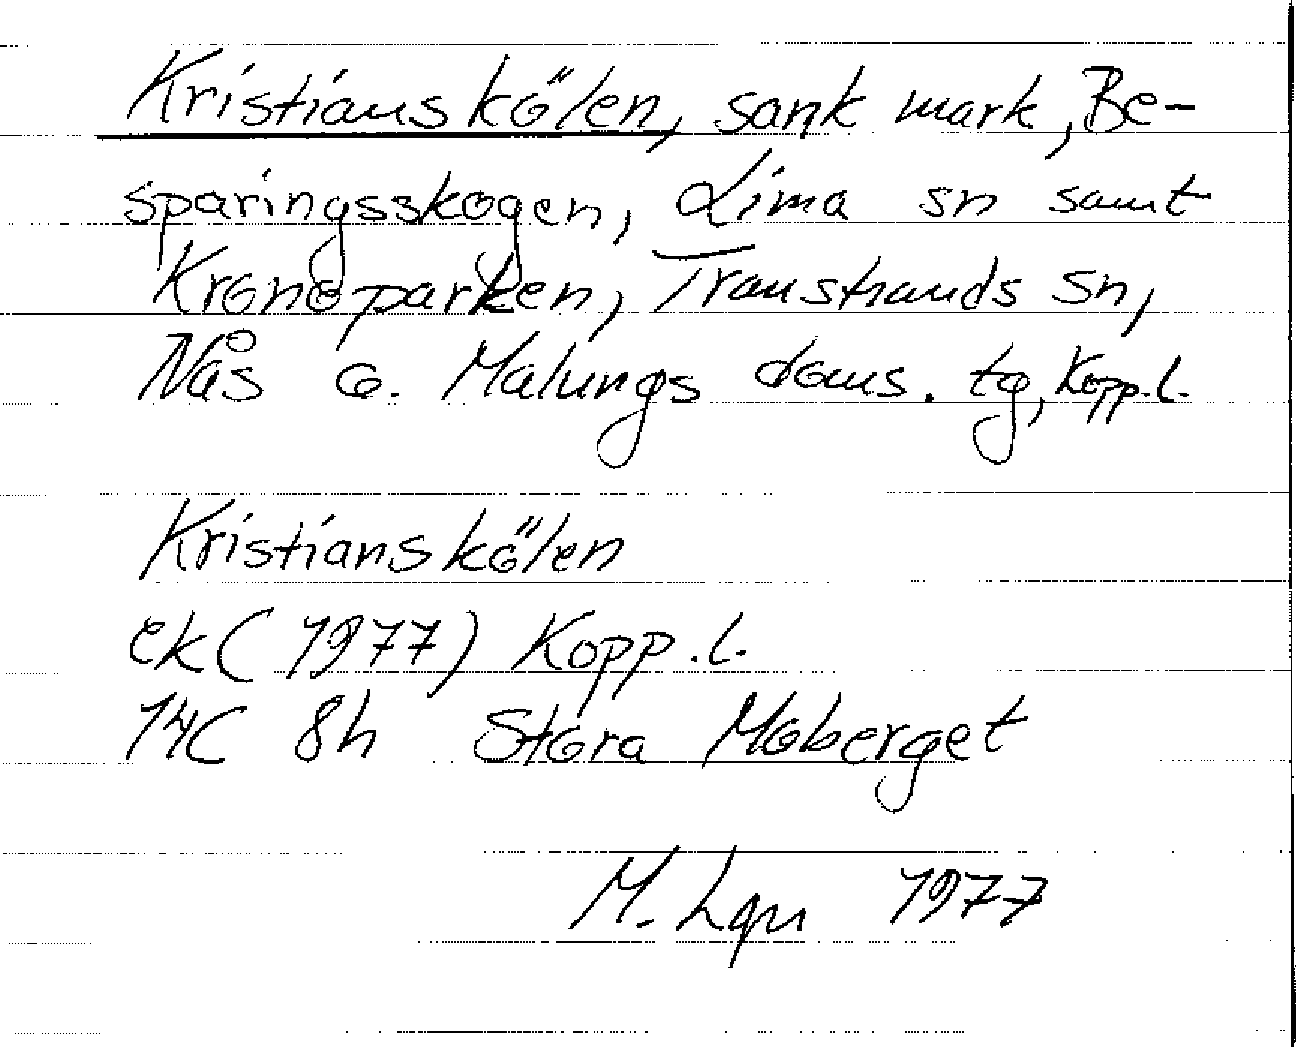 Kristianskölen, sank mark, Be-
sparingsskogen, Lima sn samt
Kronoparken, Transtrands sn,
Nås o. Malungs doms. tg, Kopp. l.
Kristianskölen
ek (1977) Kopp. l.
14C 8h Stora Moberget
M. Lqn 1977